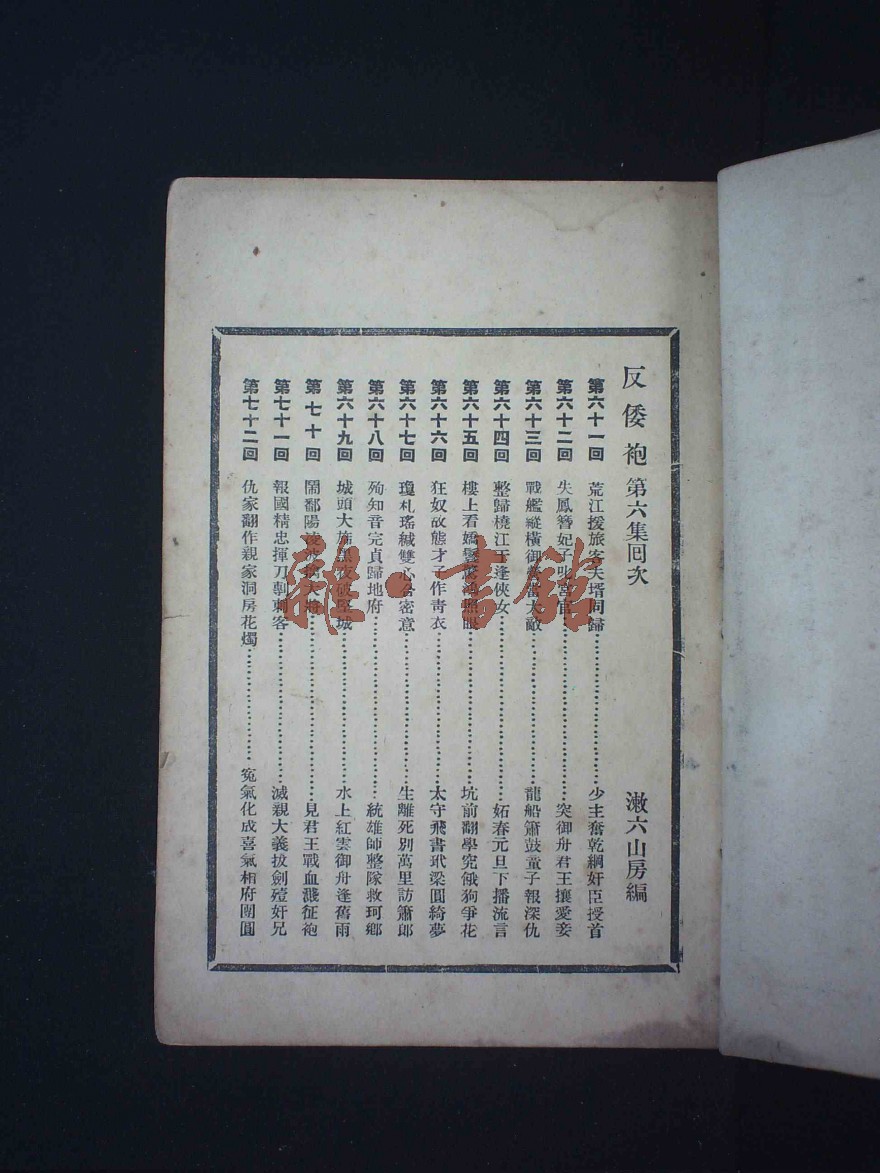 反倭袍第六集回次 漱六山房編
第六十一回 荒江援旅客夫壻同歸……少主奮乾綱奸臣授首
第六十二回 失鳳簪妃子叱宮官……突御舟君王攘愛妾
第六十三回 戰艦縱橫御 大敵……龍船簫鼓童子報深仇
第六十四回 整歸橈江干逢俠女……妬春元旦下播流言
第六十五回 樓上看嬌 照眼……坑前翻學究餓狗爭花
第六十六回 狂奴故態才子作靑衣……太守飛書玳梁圓綺夢
第六十七回 瓊札瑤緘雙心 密意……生離死別萬里訪簫郎
第六十八回 殉知音完貞歸地府……統雄師整隊救珂鄉
第六十九回 城頭大旗黑夜破堅城……水上紅雲御舟逢舊雨
第七十回 鬧鄱陽凌波擒大將……見君王戰血濺征袍
第七十一回 報國精忠揮刀剸刺客……滅親大義拔劍殪奸兄
第七十二回 仇家翻作親家洞房花燭……冤氣化成喜氣相府團圓
雜·書館